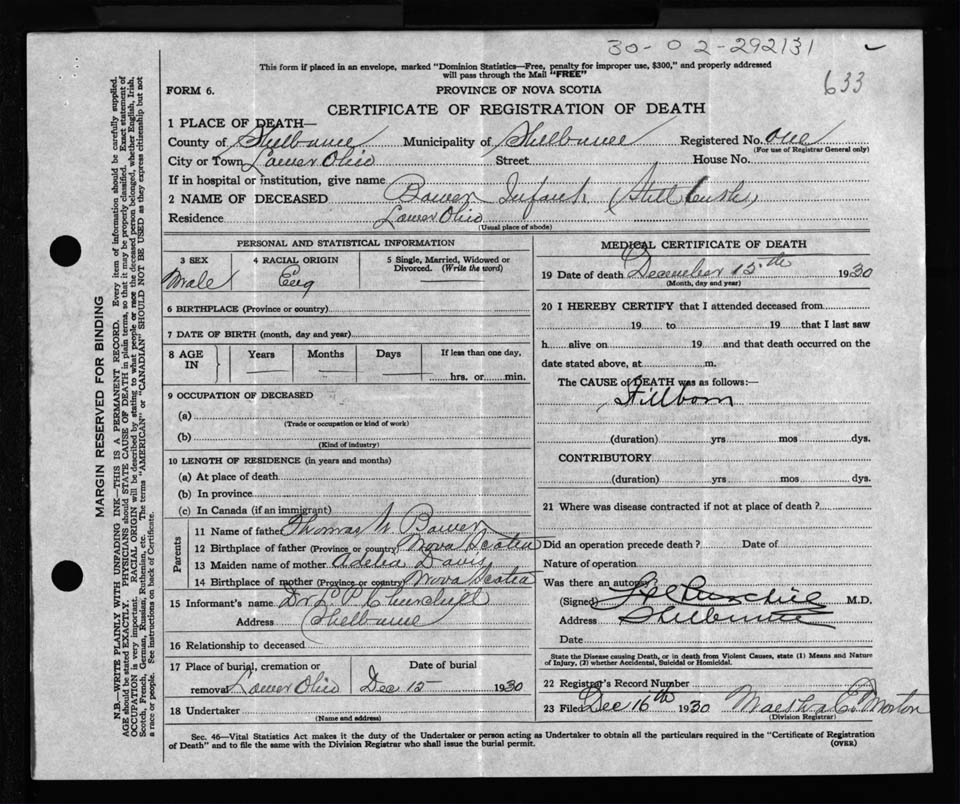 30-02-292131
633
This form if placed in an envelope, marked "Dominion Statistics—Free, penalty for improper use, $300," and properly addressed
will pass through the Mail "FREE"
FORM 6.
PROVINCE OF NOVA SCOTIA
CERTIFICATE OF REGISTRATION OF DEATH
1 PLACE OF DEATH—
County of Shelburne Municipality of Shelburne Registered No. one
(For use of Registrar General only)
City or Town Lower Ohio Street House No.
If in hospital or institution, give name
2 NAME OF DECEASED Bower Infant (Still birth)
Residence Lower Ohio
(Usual place of abode)
PERSONAL AND STATISTICAL INFORMATION
3 SEX 4 RACIAL ORIGIN 5 Single, Married, Widowed or
Divorced. (Write the word)
Male Eng
6 BIRTHPLACE (Province or country)
7 DATE OF BIRTH (month, day and year)
8 AGE IN Years Months Days If less than one day,
hrs. or min.
9 OCCUPATION OF DECEASED
(a)
(Trade or occupation or kind of work)
(b)
(Kind of industry)
10 LENGTH OF RESIDENCE (in years and months)
(a) At place of death
(b) In province
(c) In Canada (if an immigrant)
Parents
11 Name of father Thomas W Bower
12 Birthplace of father (Province or country) Nova Scotia
13 Maiden name of mother Adelia Davis
14 Birthplace of mother (Province or country) Nova Scotia
15 Informant's name Dr L P Churchill
Address Shelburne
16 Relationship to deceased
17 Place of burial, cremation or Date of burial
removal Lower Ohio Dec 15 1930
18 Undertaker
(Name and address)
MEDICAL CERTIFICATE OF DEATH
19 Date of death December 15th 1930
(Month, day and year)
20 I HEREBY CERTIFY that I attended deceased from
19 to 19 that I last saw
h alive on 19 and that death occurred on the
date stated above, at m.
The CAUSE of DEATH was as follows:—
Stillborn
(duration) yrs mos dys.
CONTRIBUTORY
(duration) yrs mos dys.
21 Where was disease contracted if not at place of death?
Did an operation precede death? Date of
Nature of operation
Was there an autopsy?
(Signed) L P Churchill M.D.
Address Shelburne
Date
State the Disease causing Death, or in death from Violent Causes, state (1) Means and Nature
of Injury, (2) whether Accidental, Suicidal or Homicidal.
22 Registrar's Record Number
23 Filed Dec 16th 1930 Morton
(Division Registrar)
Sec. 46—Vital Statistics Act makes it the duty of the Undertaker or person acting as Undertaker to obtain all the particulars required in the "Certificate of Registration
of Death" and to file the same with the Division Registrar who shall issue the burial permit.
(OVER)
MARGIN RESERVED FOR BINDING
N.B.—WRITE PLAINLY WITH UNFADING INK—THIS IS A PERMANENT RECORD. Every item of information should be carefully supplied.
AGE should be stated EXACTLY. PHYSICIANS should STATE CAUSE OF DEATH in plain terms, so that it may be properly classified. Exact statement of
OCCUPATION is very important. RACIAL ORIGIN will be described by stating to what people or race the deceased person belonged, whether English, Irish,
Scotch, French, German, Russian, Ruthenian, etc. The terms "AMERICAN" or "CANADIAN" SHOULD NOT BE USED as they express citizenship but not
a race or people. See instructions on back of Certificate.